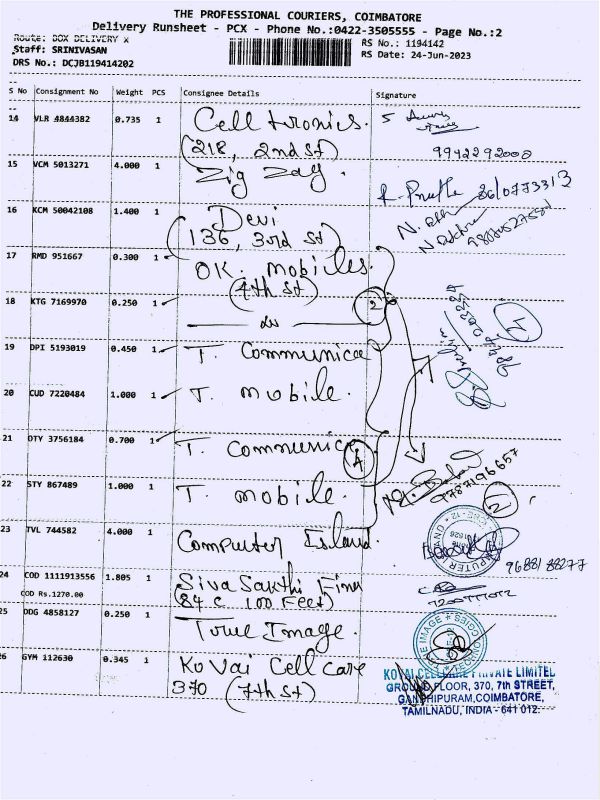 THE PROFESSIONAL COURIERS, COIMBATORE
Delivery Runsheet - PCX - Phone No.:0422-3505555 - Page No.:2
Route: DOX DELIVERY X
Staff: SRINIVASAN
RS No.: 1194142
DRS No.: DCJB119414202
RS Date: 24-Jun-2023
S No Consignment No Weight PCS Consignee Details Signature
14 VLR 4844382 0.735 1 Cell tronics.
(218, 2nd St)
9942292000
15 VCM 5013271 4.000 1 Zig Zag.
16 KCM 50042108 1.400 1 Devi
(136, 3rd St)
17 RMD 951667 0.300 1 OK. mobiles.
(4th St)
18 KTG 7169970 0.250 1 do
2
19 DPI 5193019 0.450 1 T. Communica
20 CUD 7220484 1.000 1 T. mobile.
21 OTY 3756184 0.700 1 T. Communica
22 STY 867489 1.000 1 T. mobile.
9787196657
23 TVL 744582 4.000 1 Computer Island.
9688188277
24 COD 1111913556 1.805 1 Siva Sakthi Finu
COD Rs.1270.00 (84 C 100 Feet)
25 DDG 4858127 0.250 1 True Image.
26 GYM 112630 0.345 1 Kovai Cell care
370 (7th St)
GROUND FLOOR, 370, 7th STREET,
GANDHIPURAM, COIMBATORE,
TAMILNADU, INDIA - 641 012.